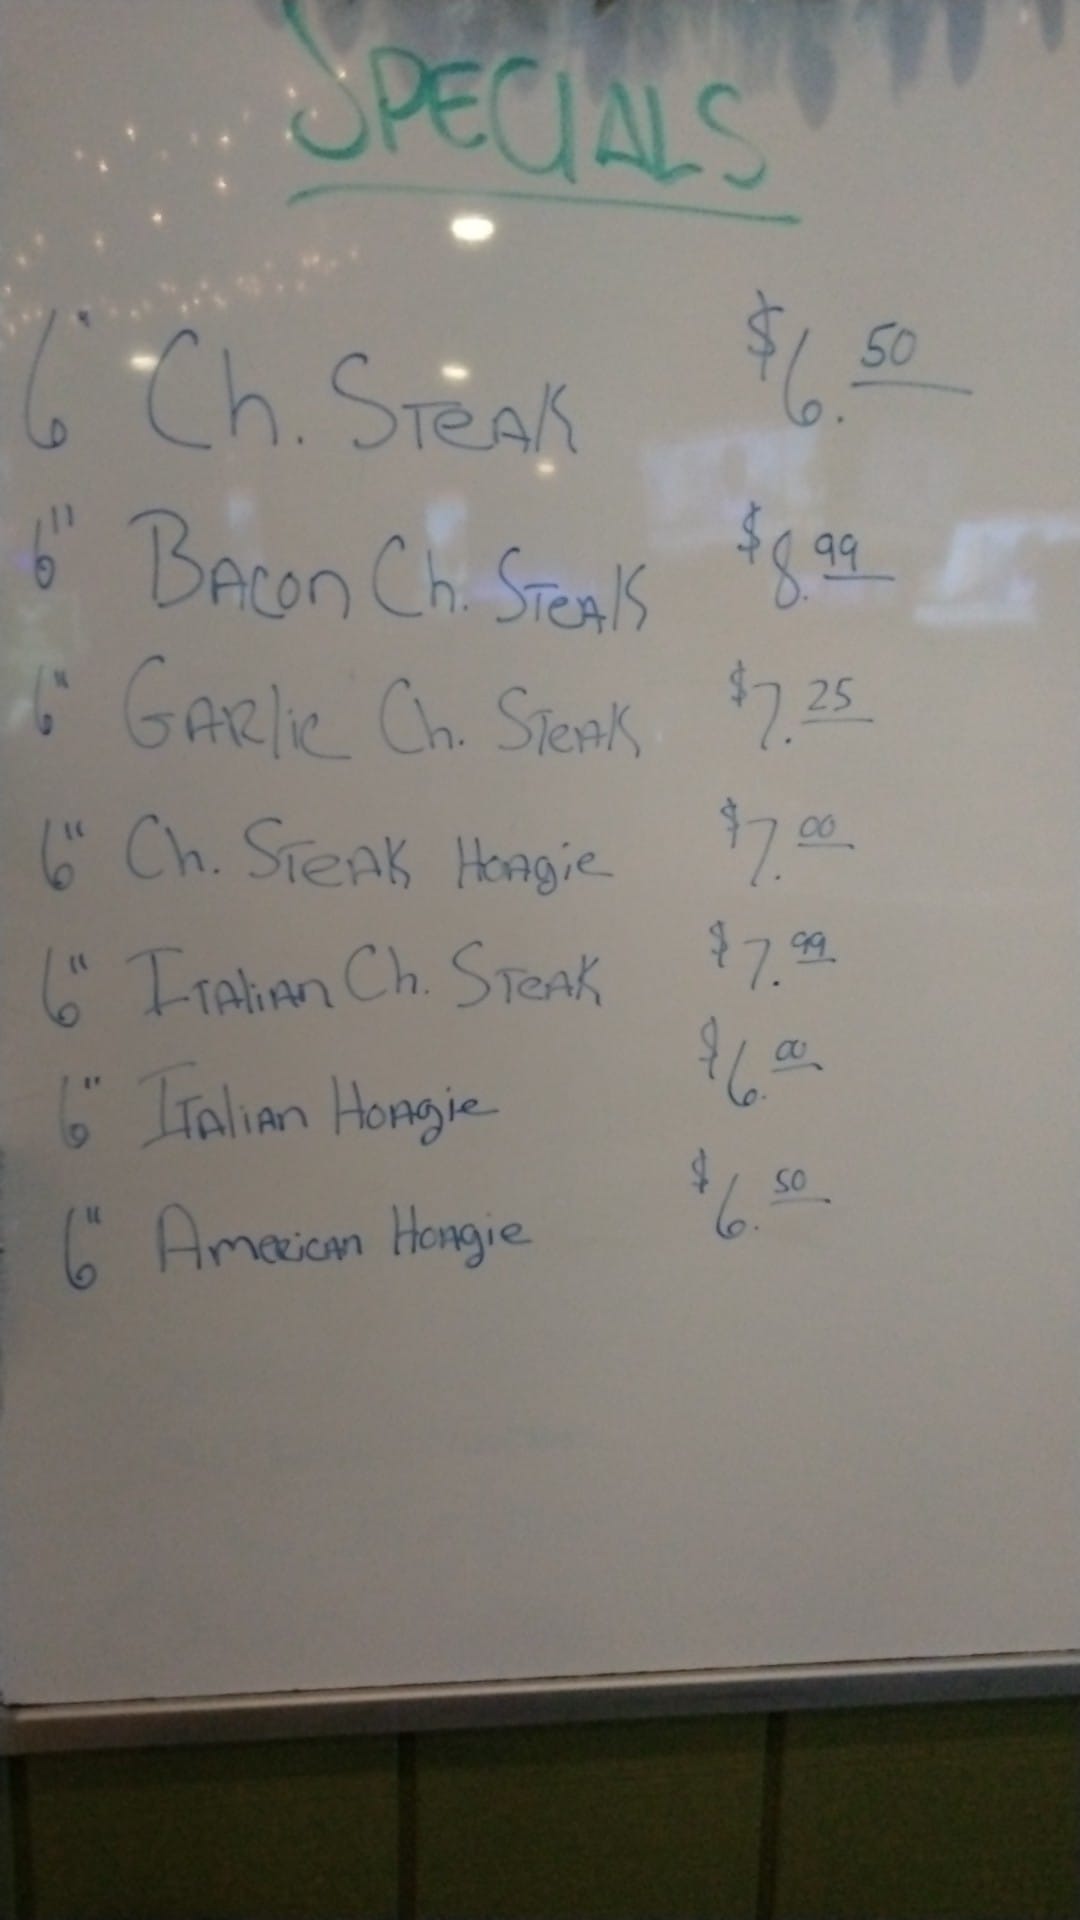 SPECIALS
6" Ch. STEAK $6.50
6" BACON Ch. STEAK $8.99
6" GARlic Ch. STEAK $7.25
6" Ch. STEAK HOAgie $7.00
6" ITAliAn Ch. STEAK $7.99
6" ITAliAn HOAgie $6.00
6" AmeRicAn HOAgie $6.50